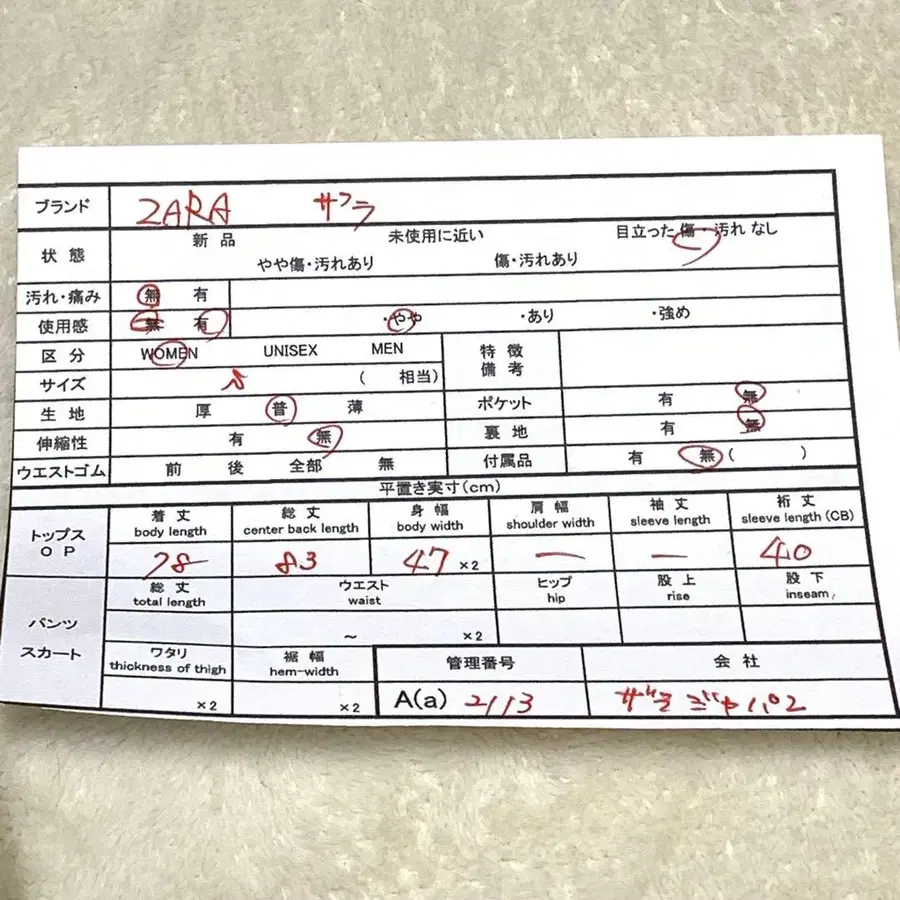 ブランド ZARA ザラ
状態 新品 未使用に近い 目立った傷・汚れなし
やや傷・汚れあり 傷・汚れあり
汚れ・痛み 無 有
使用感 無 有 ・やや ・あり ・強め
区分 WOMEN UNISEX MEN 特徴備考
サイズ S ( 相当)
生地 厚 普 薄 ポケット 有 無
伸縮性 有 無 裏地 有 無
ウエストゴム 前 後 全部 無 付属品 有 無 ( )
平置き実寸(cm)
トップス OP 着丈 総丈 身幅 肩幅 袖丈 裄丈
body length center back length body width shoulder width sleeve length sleeve length (CB)
78 83 47 ×2 ー ー 40
パンツ スカート 総丈 ウエスト ヒップ 股上 股下
total length waist hip rise inseam
~ ×2
ワタリ 裾幅 管理番号 会社
thickness of thigh hem-width
×2 ×2 A(a) 2113